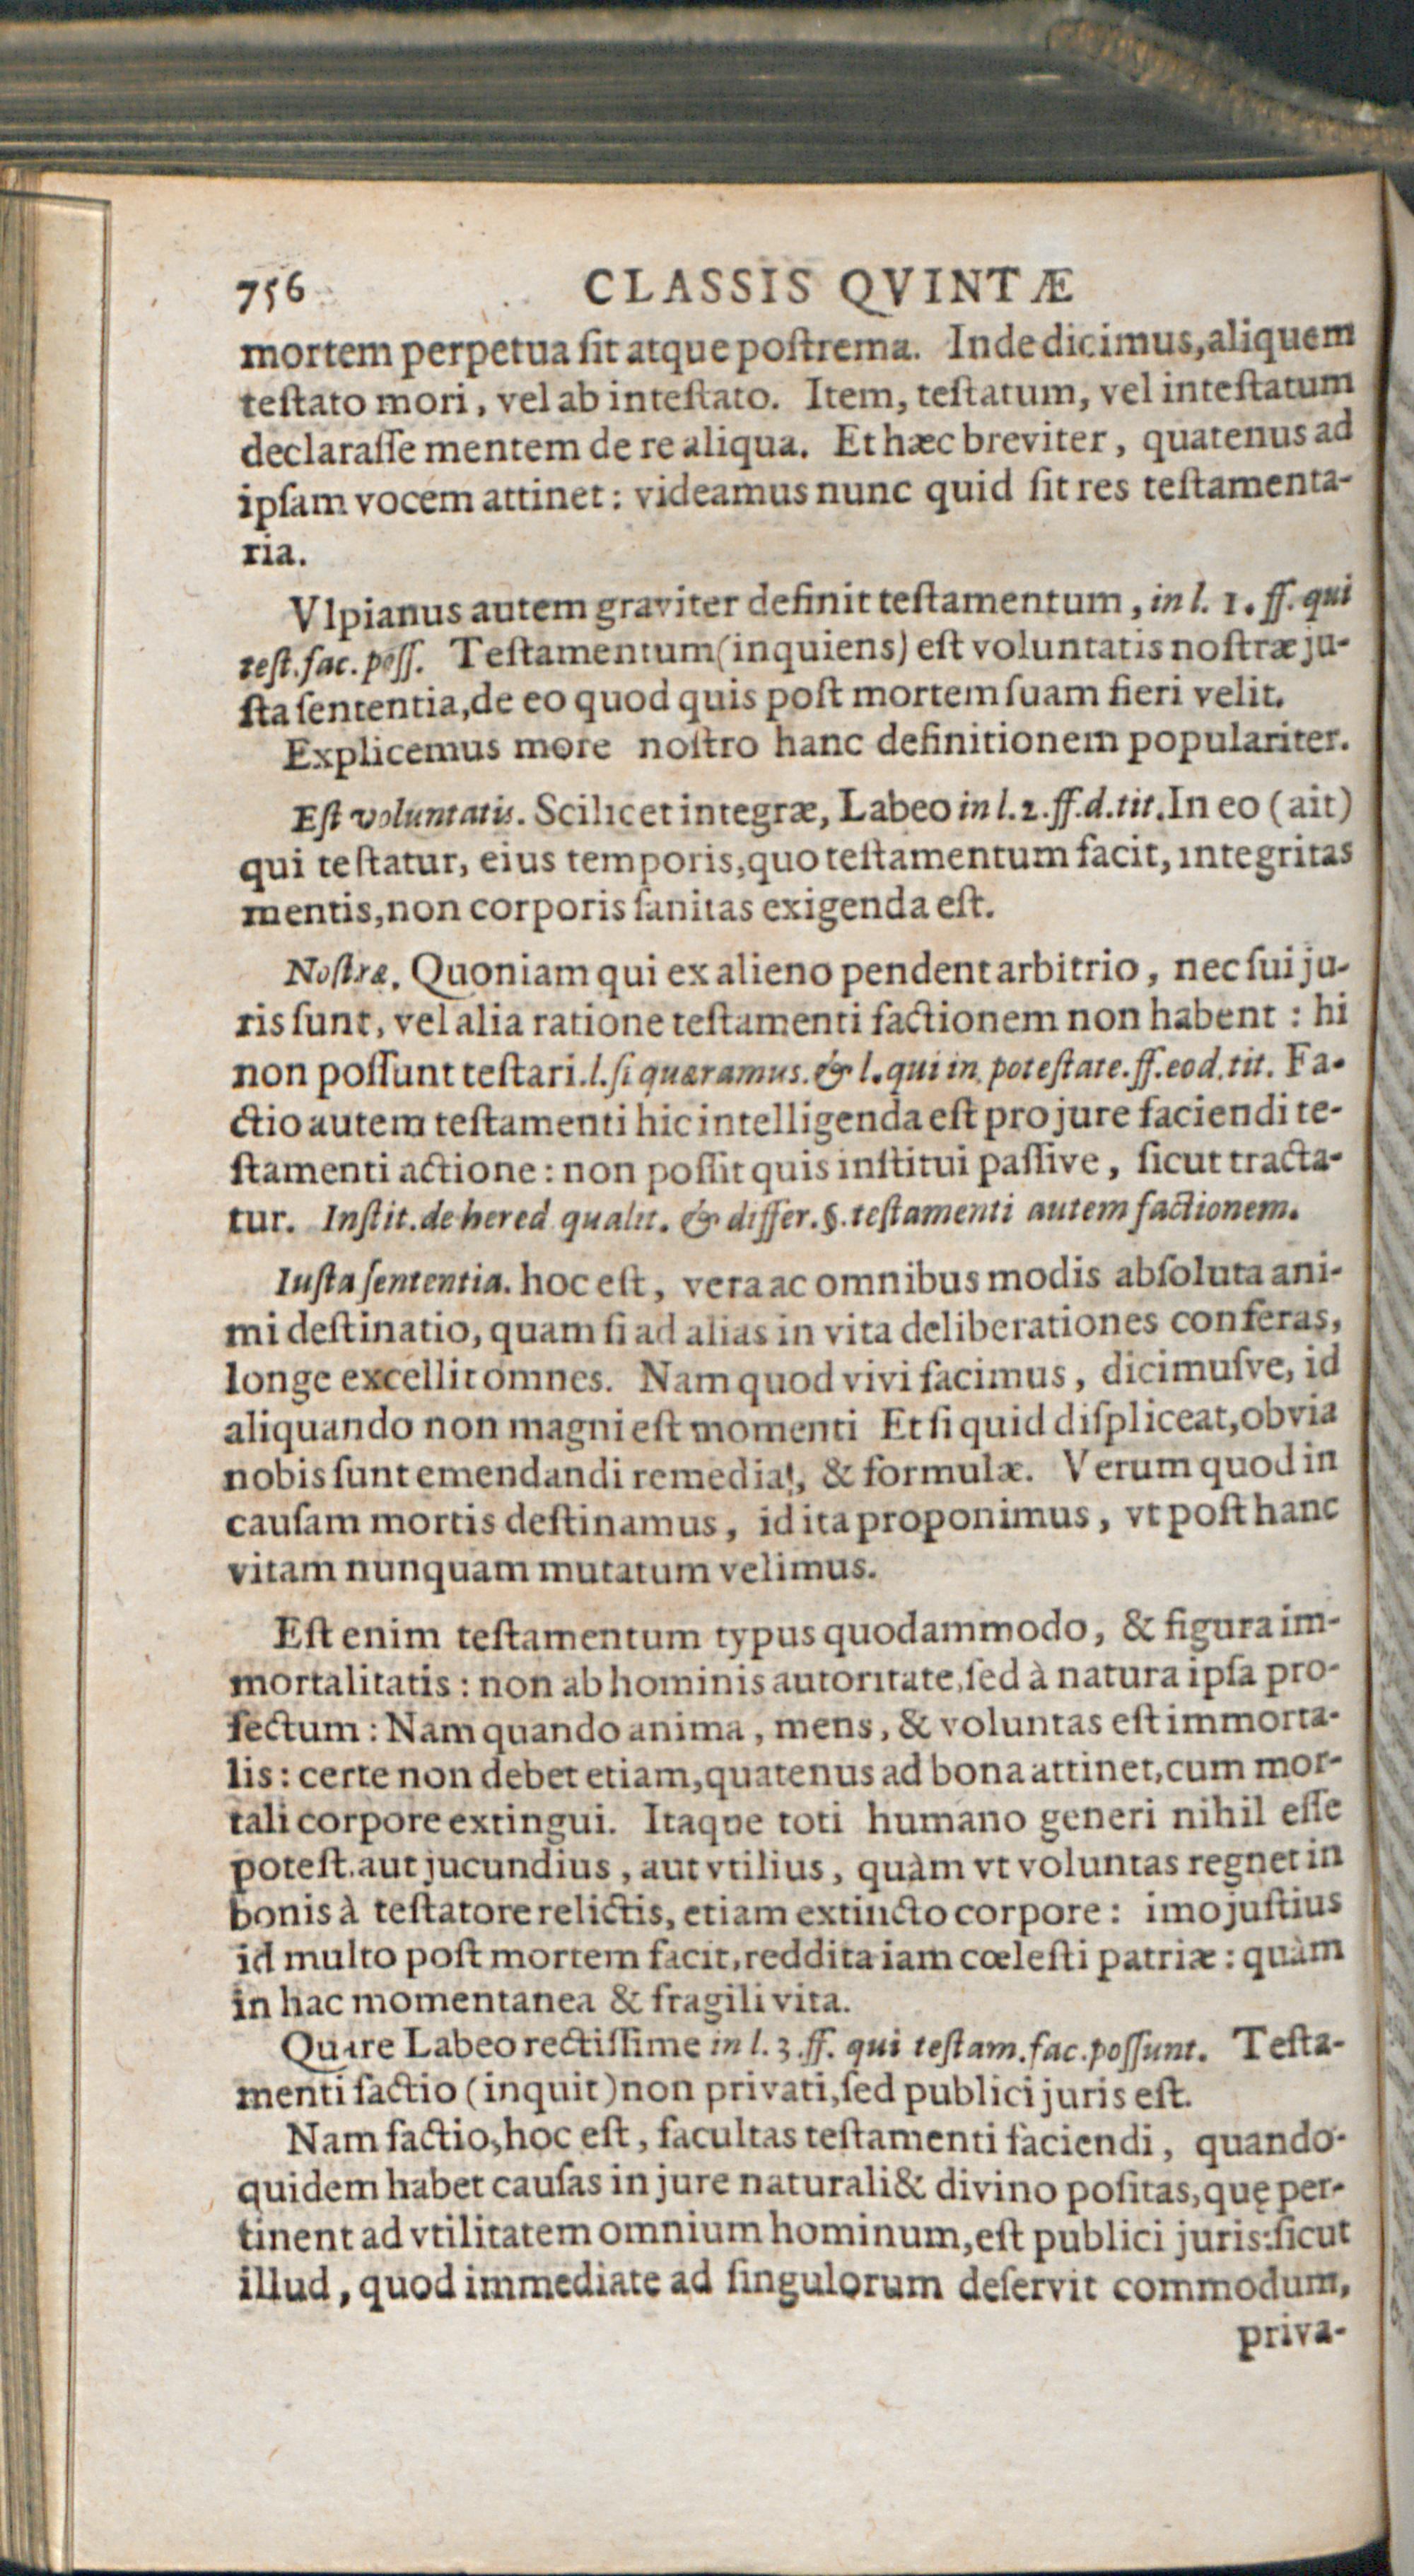 756 CLASSIS QVINTÆ
mortem perpetua ſit atque poſtrema. Inde dicimus, aliquem
teſtato mori, vel ab inteſtato. Item, teſtatum, vel inteſtatum
declaraſſe mentem de re aliqua. Et hæc breviter, quatenus ad
ipſam vocem attinet: videamus nunc quid ſit res teſtamenta-
ria.
Vlpianus autem graviter definit teſtamentum, in l. 1. ff. qui
teſt. fac. poſſ. Teſtamentum (inquiens) eſt voluntatis noſtræ ju-
ſta ſententia, de eo quod quis poſt mortem ſuam fieri velit.
Explicemus more noſtro hanc definitionem populariter.
Eſt voluntatis. Scilicet integræ, Labeo in l. 2. ff. d. tit. In eo (ait)
qui teſtatur, eius temporis, quo teſtamentum facit, integritas
mentis, non corporis ſanitas exigenda eſt.
Noſtræ. Quoniam qui ex alieno pendent arbitrio, nec ſui ju-
ris ſunt, vel alia ratione teſtamenti factionem non habent : hi
non poſſunt teſtari. l. ſi quæramus. & l. qui in poteſtate. ff. eod. tit. Fa-
ctio autem teſtamenti hic intelligenda eſt pro jure faciendi te-
ſtamenti actione: non poſſit quis inſtitui paſſive, ſicut tracta-
tur. Inſtit. de hered qualit. & differ. §. teſtamenti autem factionem.
Iuſta ſententia. hoc eſt, vera ac omnibus modis abſoluta ani-
mi deſtinatio, quam ſi ad alias in vita deliberationes conferas,
longe excellit omnes. Nam quod vivi facimus, dicimuſve, id
aliquando non magni eſt momenti Et ſi quid diſpliceat, obvia
nobis ſunt emendandi remedia, & formulæ. Verum quod in
cauſam mortis deſtinamus, id ita proponimus, vt poſt hanc
vitam nunquam mutatum velimus.
Eſt enim teſtamentum typus quodammodo, & figura im-
mortalitatis: non ab hominis autoritate, ſed à natura ipſa pro-
fectum: Nam quando anima, mens, & voluntas eſt immorta-
lis: certe non debet etiam, quatenus ad bona attinet, cum mor-
tali corpore extingui. Itaque toti humano generi nihil eſſe
poteſt. aut jucundius, aut vtilius, quàm vt voluntas regnet in
bonis à teſtatore relictis, etiam extincto corpore: imo juſtius
id multo poſt mortem facit, reddita iam cœleſti patriæ: quàm
in hac momentanea & fragili vita.
Quare Labeo rectiſſime in l. 3. ff. qui teſtam. fac. poſſunt. Teſta-
menti factio (inquit) non privati, ſed publici juris eſt.
Nam factio, hoc eſt, facultas teſtamenti faciendi, quando-
quidem habet cauſas in jure naturali & divino poſitas, quę per-
tinent ad vtilitatem omnium hominum, eſt publici juris: ſicut
illud, quod immediate ad ſingulorum deſervit commodum,
priva-